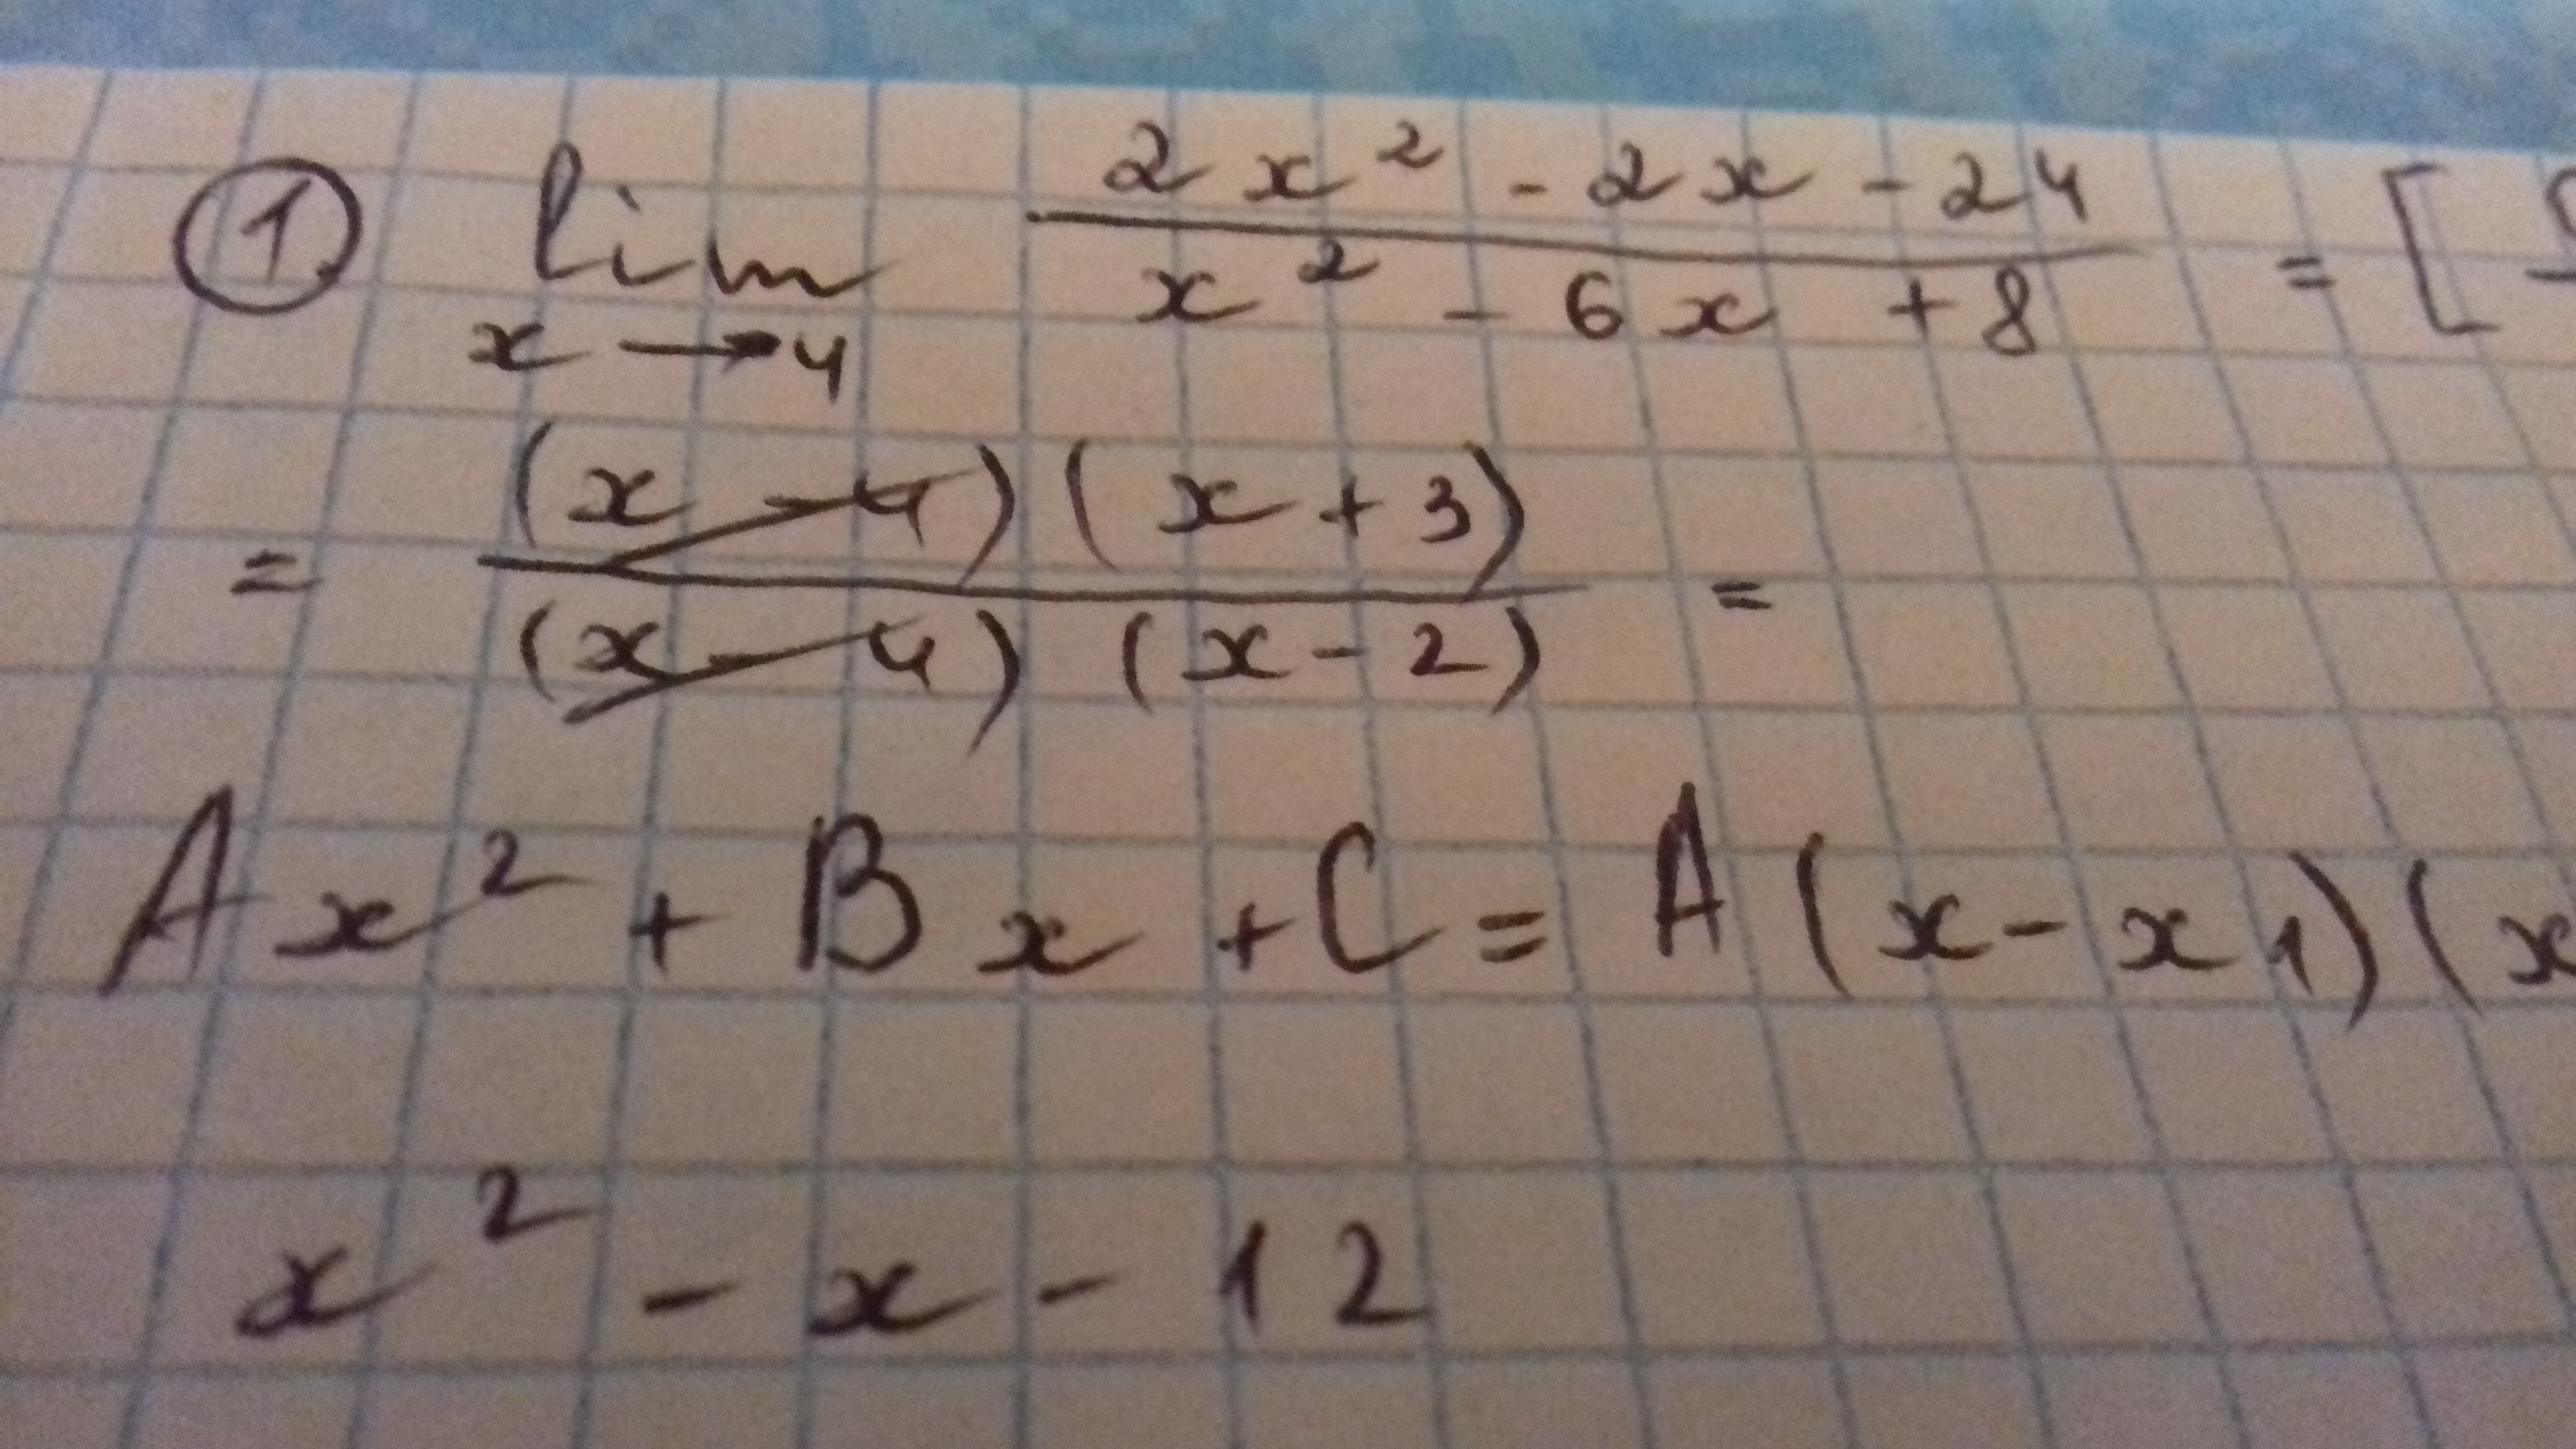 ① lim 2x² - 2x - 24 / x² - 6x + 8 = [
x → 4
= (x - 4)(x + 3) / (x - 4)(x - 2) =
Ax² + Bx + C = A(x - x1)(x
x² - x - 12